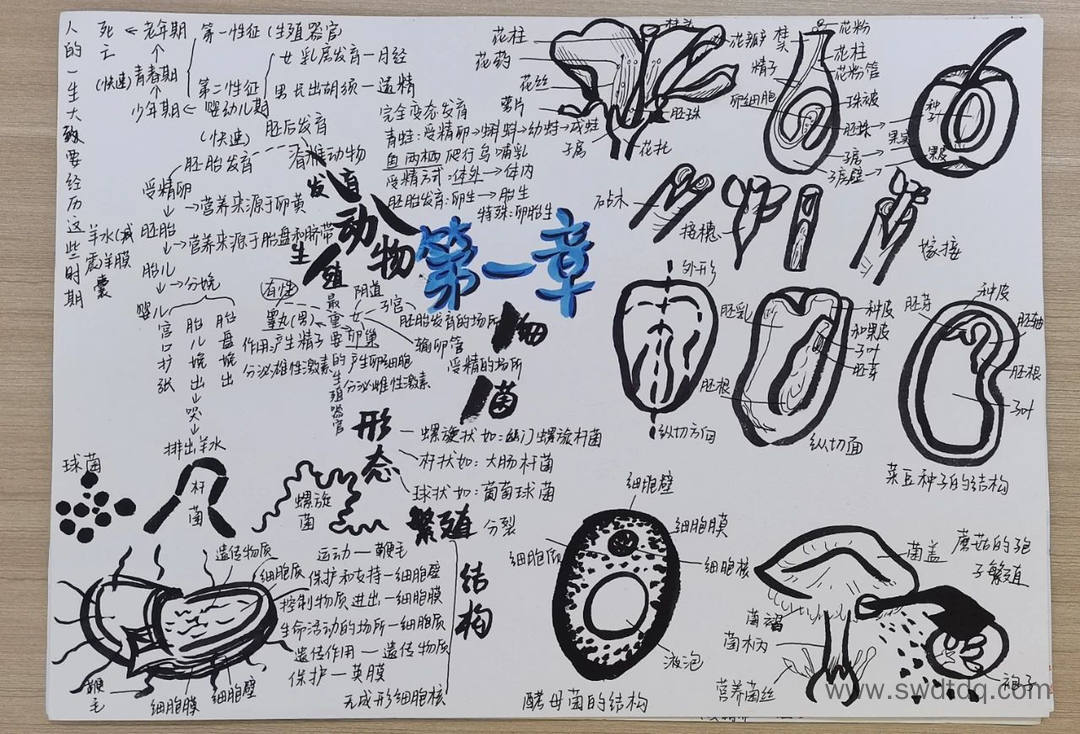 人的一生大致要经历这些时期
死亡
老年期
(快速)青春期
少年期
婴幼儿期
第一性征(生殖器官)
第二性征
女 乳房发育—月经
男 长出胡须—遗精
胚后发育
(快速)
胚胎发育
受精卵
营养来源于卵黄
胚胎
营养来源于胎盘和脐带
羊水(减震羊膜囊
胎儿
分娩
婴儿
宫口扩张
胎儿娩出
胎盘娩出
哭
排出羊水
完全变态发育
青蛙:受精卵→蝌蚪→幼蛙→成蛙
鱼 两栖 爬行 鸟 哺乳
受精方式:体外→体内
胚胎发育:卵生→胎生
特殊:卵胎生
脊椎动物
动物
人
生殖
发育
第一章
最重要的生殖器官
睾丸(男)
作用:产生精子
分泌雄性激素
女
阴道
子宫
胚胎发育的场所
输卵管
受精的场所
卵巢
产生卵细胞
分泌雌性激素
细菌
形态
螺旋状 如:幽门螺旋杆菌
杆状 如:大肠杆菌
球状 如:葡萄球菌
繁殖 分裂
结构
运动—鞭毛
保护和支持—细胞壁
控制物质进出—细胞膜
生命活动的场所—细胞质
遗传作用—遗传物质
保护—荚膜
无成形细胞核
球菌
杆菌
螺旋菌
遗传物质
细胞质
鞭毛
细胞膜
细胞壁
花柱
花药
花丝
萼片
花瓣
胚珠
子房
花托
花粉
花柱
花粉管
精子
卵细胞
珠被
胚珠
子房
子房壁
种子
果实
果皮
砧木
接穗
嫁接
外形
纵切方向
胚乳
胚根
种皮
和果皮
子叶
胚芽
纵切面
胚芽
种皮
胚轴
胚根
子叶
菜豆种子的结构
细胞壁
细胞膜
细胞质
细胞核
液泡
酵母菌的结构
菌盖
菌褶
菌柄
营养菌丝
孢子
蘑菇的孢子繁殖
www.swdtdq.com